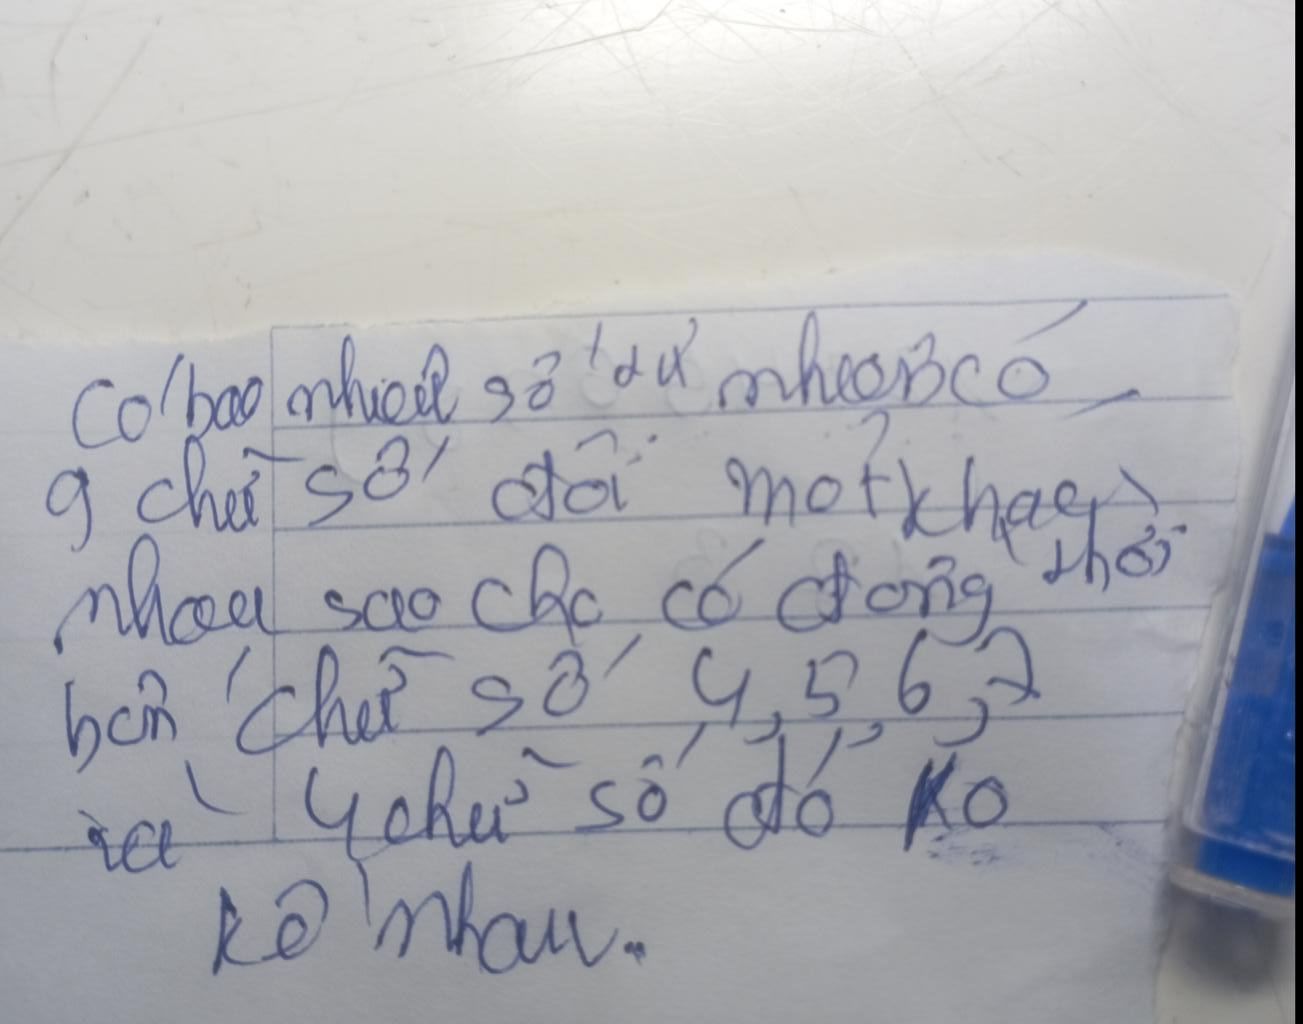 Có bao nhiêu số tự nhiên có
9 chữ số đôi một khác
nhau sao cho có đồng thời
bốn chữ số 4, 5, 6, 7
và 4 chữ số đó ko
kề nhau.